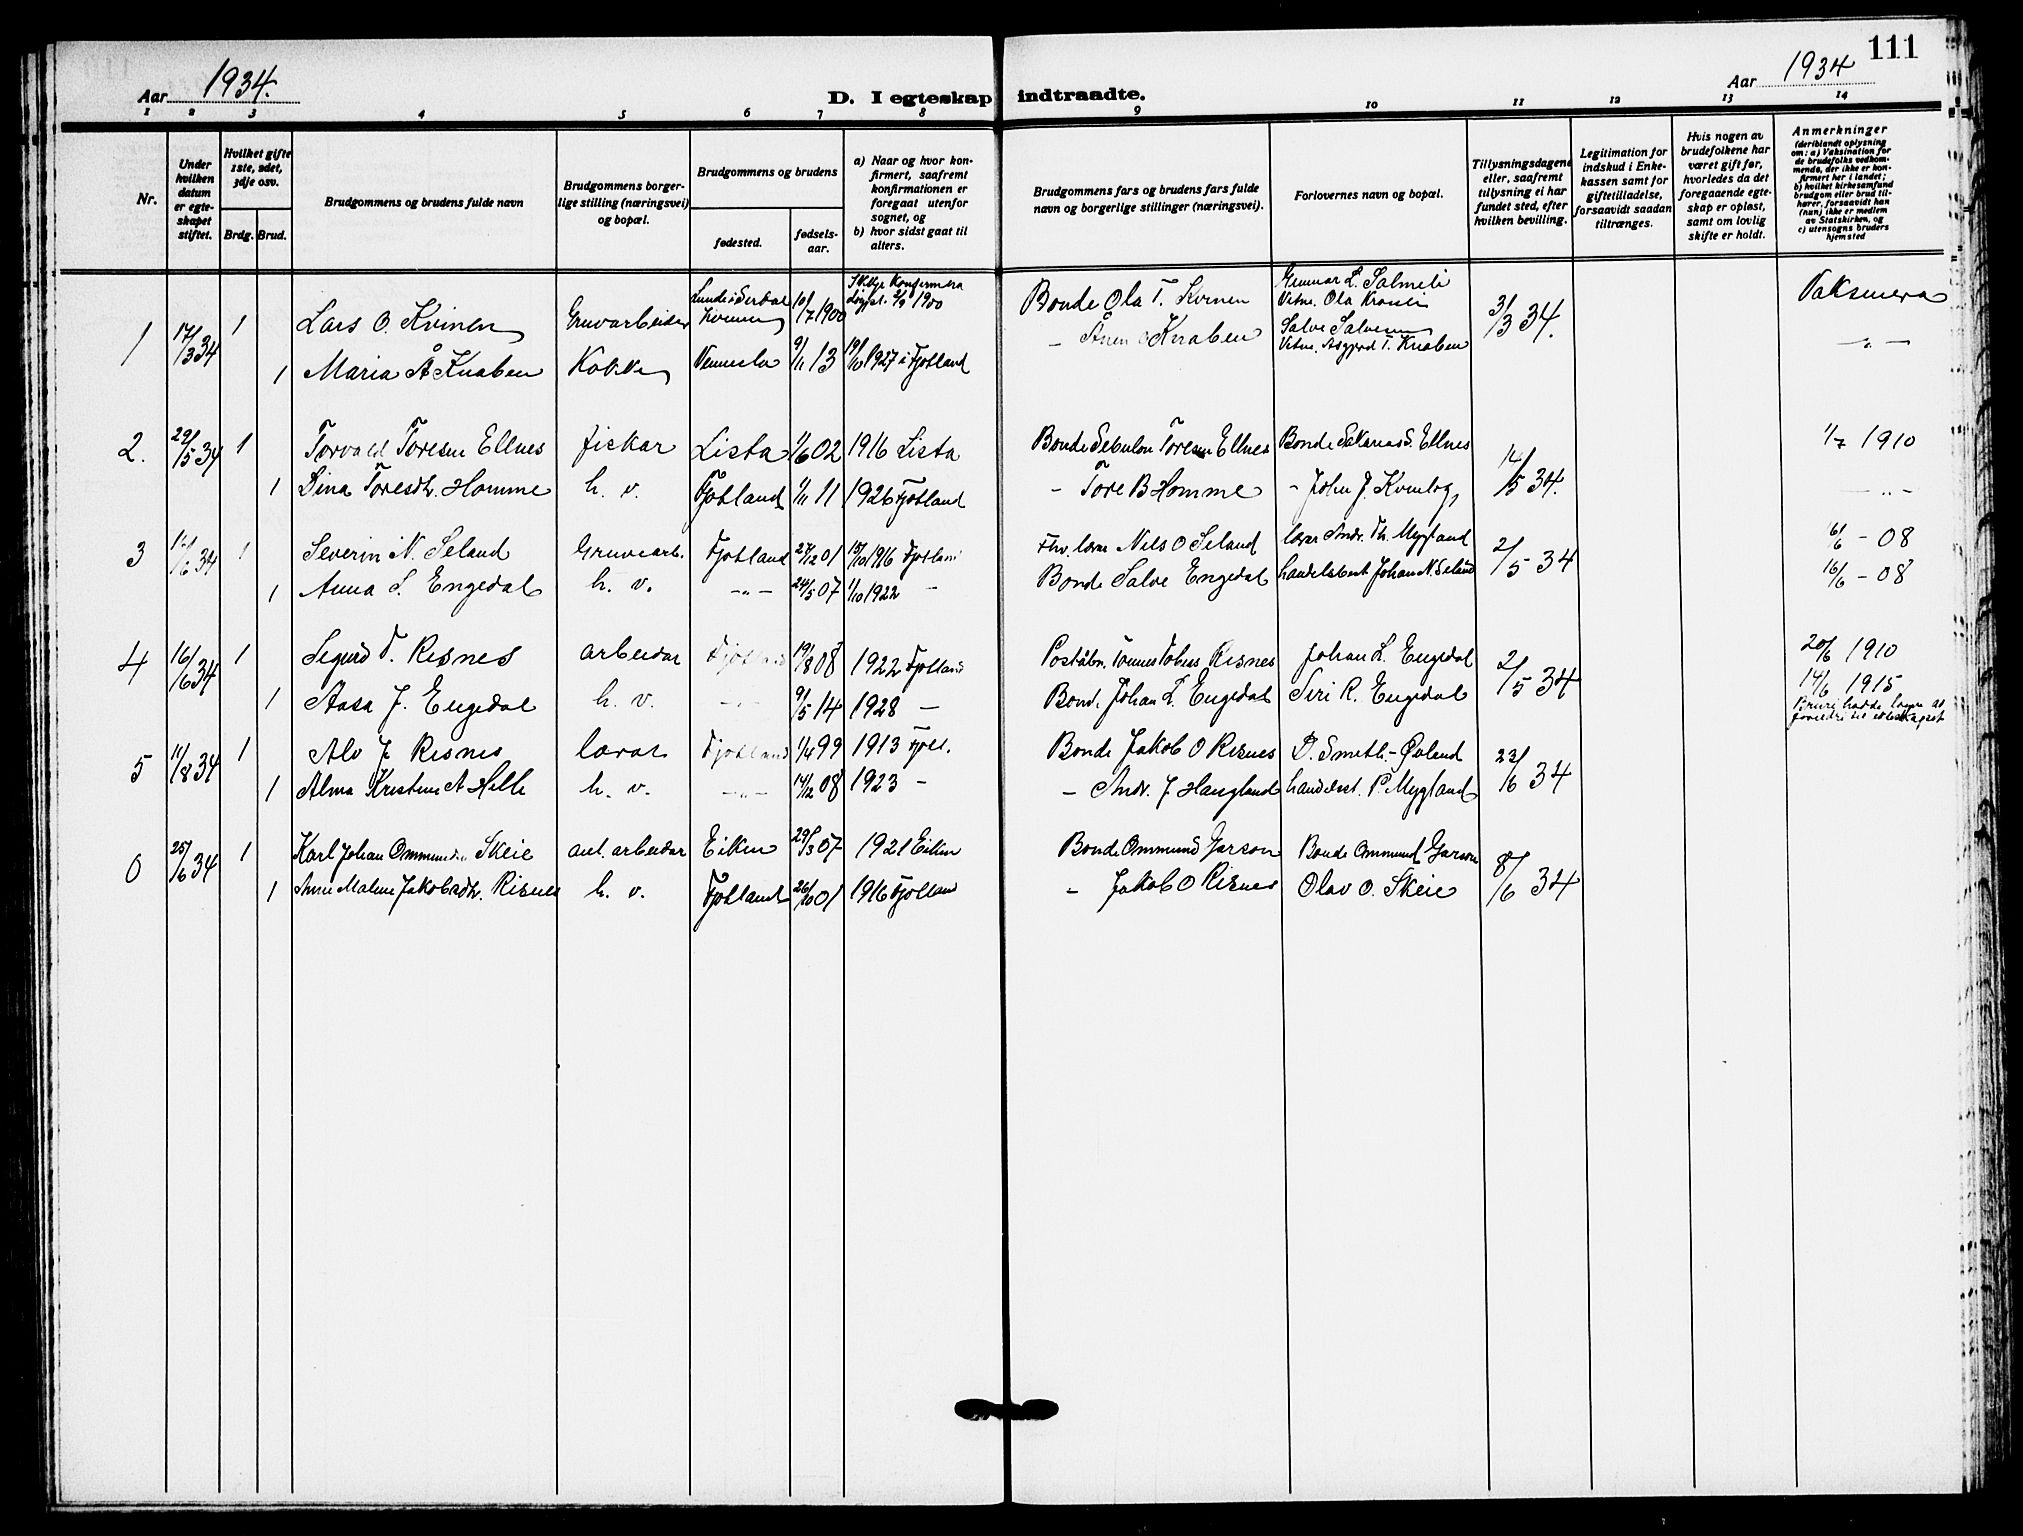 111
Aar 1934.
D. I egteskap indtraadte.
Aar 1934
1 2 3 4 5 6 7 8 9 10 11 12 13 14
Nr.
Under hvilken datum er egteskapet stiftet.
Hvilket gifte 1ste, 2det, 3dje osv.
Brdg. Brud.
Brudgommens og brudens fulde navn
Brudgommens borgerlige stilling (næringsvei) og bopæl.
Brudgommens og brudens
fødested.
fødselsaar.
a) Naar og hvor konfirmert, saafremt konfirmationen er foregaat utenfor sognet, og
b) hvor sidst gaat til alters.
Brudgommens fars og brudens fars fulde navn og borgerlige stillinger (næringsvei).
Forlovernes navn og bopæl.
Tillysningsdagene eller, saafremt tillysning ei har fundet sted, efter hvilken bevilling.
Legitimation for indskud i Enkekassen samt for giftetilladelse, forsaavidt saadan tiltrænges.
Hvis nogen av brudefolkene har været gift før, hvorledes da det foregaaende egteskap er opløst, samt om lovlig skifte er holdt.
Anmerkninger (deriblandt oplysning om: a) Vaksination for de brudefolks vedkommende, der ikke er konfirmert her i landet; b) hvilket kirkesamfund brudgom eller brud tilhører, forsaavidt han (hun) ikke er medlem av Statskirken, og c) utensogns bruders hjemsted
1 17/3 34 1 Lars O. Kvinen Gruvarbeider Lunde i Serdal Kvinen 10/7 1900 Bonde Ola T. Kvinen Gunnar L. Salmeli Vitne. Ola 3/3 34. Vaksinera
1 Maria Å Knaben Kokke Vennesla 9/11 13 19/10 1927 i Fjotland - Ånen O Knaben Salve Salvesen Vitne. Asgjerd T. Knaben - " -
2. 29/5 34 1 Torvald Toresen Ellnes fiskar Lista 1/6 02 1916 Lista Bonde Sebulon Toresen Ellnes Bonde Sakarias S. Ellnes 14/5 34. 1/7 1910
1 Dina Toresdtr. Homme h. v. Fjotland 1/11 11 1926 Fjotland - Tore B Homme - John J. Kvinlog - " -
3 34 1 Severin N. Seland Gruvearb. Fjotland 27/12 01 15/10 1916 Fjotland Fhv. lærar Nils O Seland lærar Andr. Th. Mygland 2/5 34 6/6 - 08
1 Anna S. Engedal h. v. - " - 24/5 07 1/10 1922 - Bonde Salve Engedal handelsbest Johan N. Seland 16/6 - 08
4 16/6 34 1 Sigurd T. Risnes arbeidar Fjotland 19/8 08 1922 Fjotland Poståbn. Tønnes Tobias Risnes Johan L. Engedal 2/5 34 20/6 1910
1 Aasa J. Engedal h. v. - " - 9/5 14 1928 - Bond. Johan L Engedal Siri R. Engedal 14/6 1915
Bruri hadde løyve av foreldri til ekteskapet
5 11/8 34 1 Alv J Risnes lærar Fjotland 1/4 99 1913 Fjotl. Bonde Jakob O Risnes D. Smith.-Øvland 23/6 34
1 Alma Kristine A Helle h. v. - " - 14/12 08 1923 - - Andr. J Haugland handelsst. P. Mygland
6 25/6 34 1 Karl Johan Ommundsen Skeie anl. arbeidar Eiken 29/3 07 1921 Eiken Bonde Ommund Garson Bonde Ommund Garson 8/6 34
1 Anne Malene Jakobsdtr. Risnes h. v. Fjotland 26/10 01 1916 Fjotland - Jakob O Risnes Olav O. Skeie